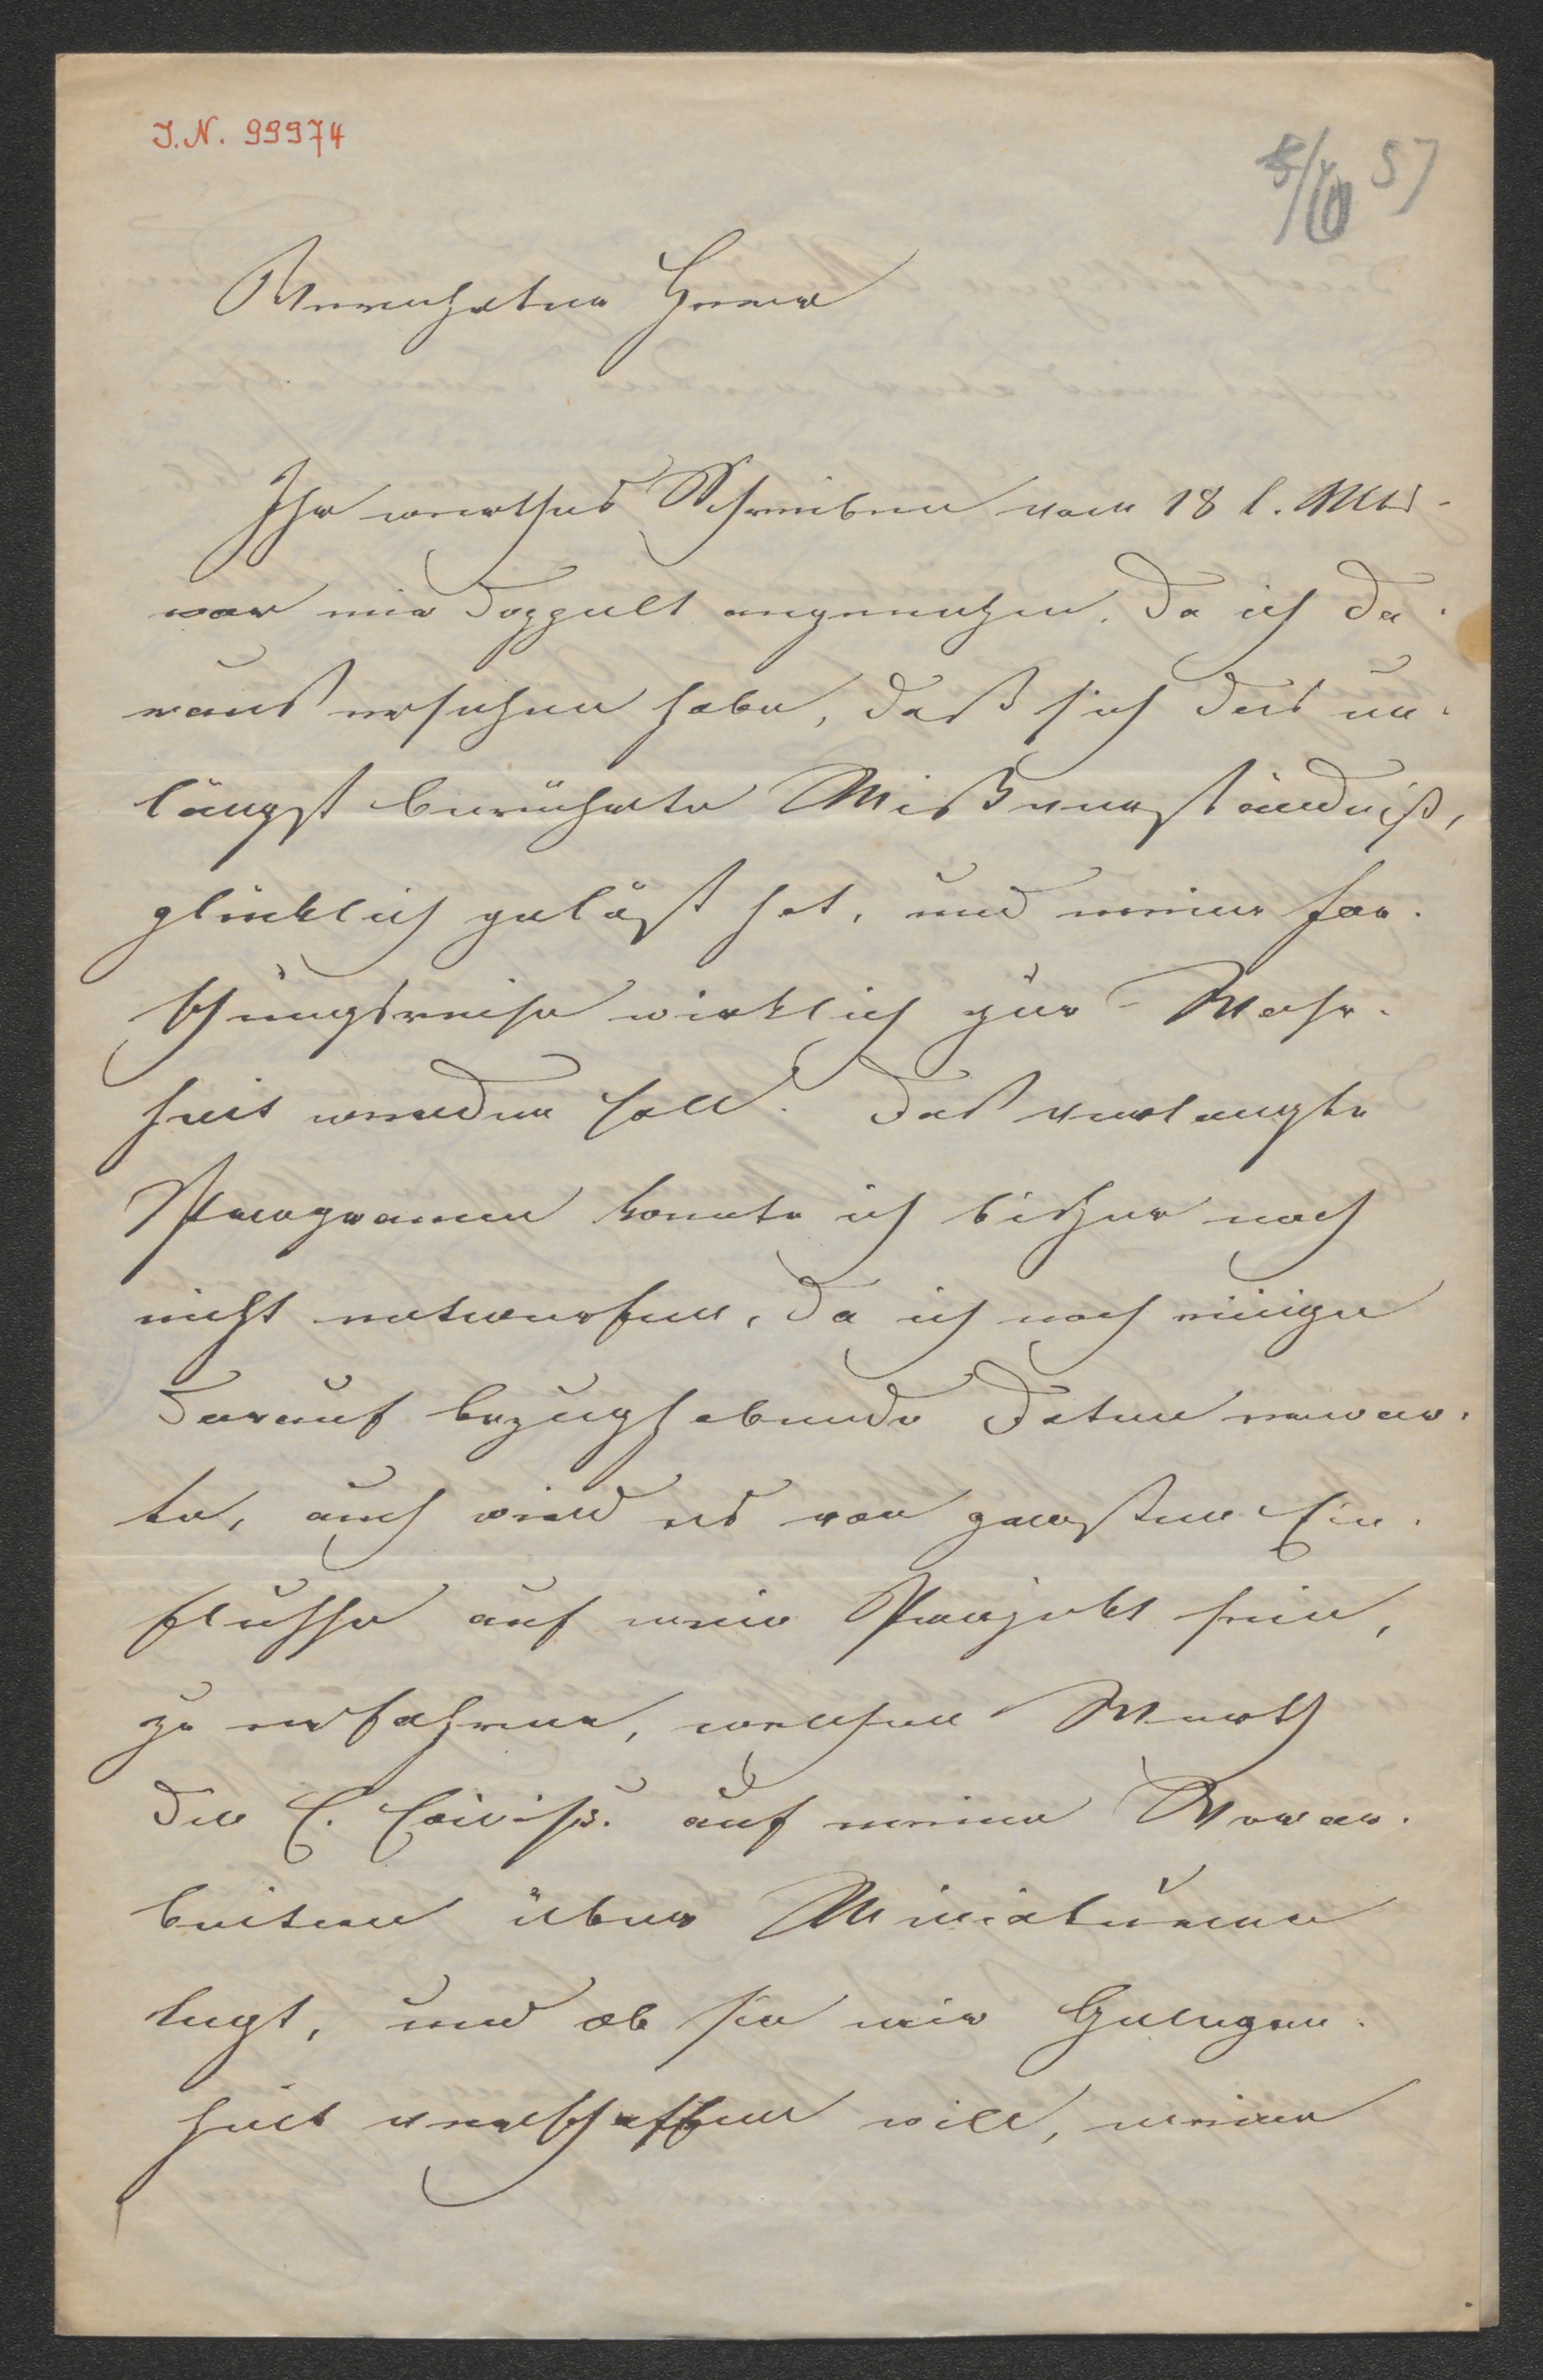 I.N. 99974
5/10 57
Verehrter Herr
Ihr werthes Schreiben vom 18 l. Mts-
war mir doppelt angenehm, da ich da-
raus ersehen habe, daß sich das un-
längst berührte Mißverständniß,
glücklich gelöst hat, und meine For-
schungsreise wirklich zur Wahr-
heit werden soll. Das verlangte
Programm konnte ich bisher noch
nicht entwerfen, da ich noch einige
darauf bezughabende Daten erwar-
te, auch wird es von größtem Ein-
flusse auf mein Projekt sein,
zu erfahren, welchen Werth
die C. Comiß. auf meine Vorar-
beiten über Miniaturen
legt, und ob sie mir Gelegen-
heit verschaffen will, meine